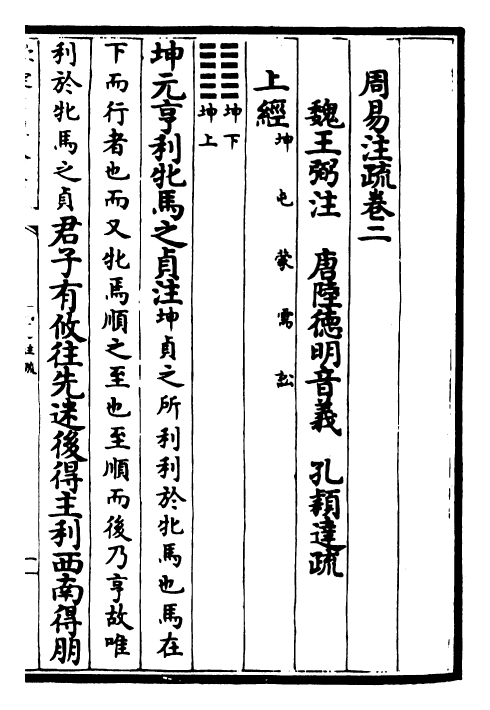 周易注疏卷二
魏王弼注 唐陸德明音義 孔穎達疏
上經坤 屯 蒙 需 訟
䷁坤下
坤上
坤元亨利牝馬之貞注坤貞之所利利於牝馬也馬在
下而行者也而又牝馬順之至也至順而後乃亨故唯
利於牝馬之貞君子有攸往先迷後得主利西南得朋